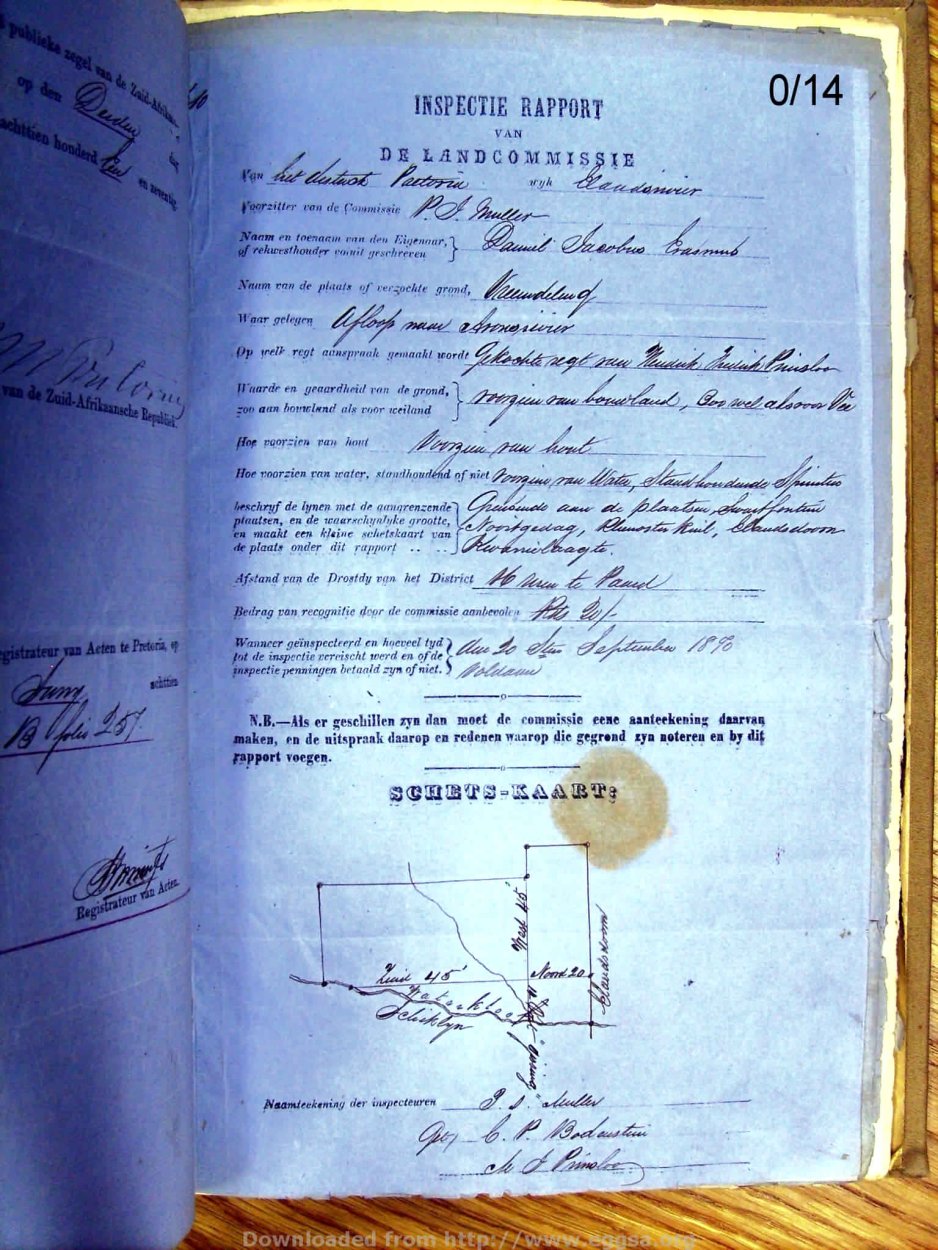 publieke zegel van de Zuid-Afrikaansche
op den Derden dag
achttien honderd Een en zeventig.
van de Zuid-Afrikaansche Republiek.
Registrateur van Acten te Pretoria, op
achttien
B folio 257
Registrateur van Acten.
0/14
INSPECTIE RAPPORT
VAN
DE LANDCOMMISSIE
Van het district Pretoria wyk Elandsrivier
Voorzitter van de Commissie P. J. Muller
Naam en toenaam van den Eigenaar,
of rekwesthouder voluit geschreven
Daniel Jacobus Erasmus
Naam van de plaats of verzochte grond, Vreemdeling
Waar gelegen Afloop naar
Op welk regt aanspraak gemaakt wordt Gekochte regt van Hendrik Fredrik Prinsloo
Waarde en geaardheid van de grond,
zoo aan bouwland als voor weiland
voorzien van bouwland, Zoo wel als voor Vee
Hoe voorzien van hout Voorzien van hout
Hoe voorzien van water, standhoudend of niet voorzien van Water, Standhoudende
beschryf de lynen met de aangrenzende
plaatsen, en de waarschynlyke grootte,
en maakt een kleine schetskaart van
de plaats onder dit rapport .. ..
Grensende aan de plaatsen, Swartfontein
Nooitgedag, Rhenoster Kuil, Elandsdoorn
Kwarrielaagte.
Afstand van de Drostdy van het District 16 Uren te Paard
Bedrag van recognitie door de commissie aanbevolen Rds 20/-
Wanneer geinspecteerd en hoeveel tyd
tot de inspectie vereischt werd en of de
inspectie penningen betaald zyn of niet.
den 20 Sten September 1870
Voldaan
N.B.—Als er geschillen zyn dan moet de commissie eene aanteekening daarvan
maken, en de uitspraak daarop en redenen waarop die gegrond zyn noteren en by dit
rapport voegen.
SCHETS-KAART:
West 45'
Elandsdoorn
Zuid 45'
Noord 20
Scheidlyn
Naamteekening der inspecteuren P. J. Muller
Get C. P. Bodenstein
M J Prinsloo
Downloaded from http://www.eggsa.org